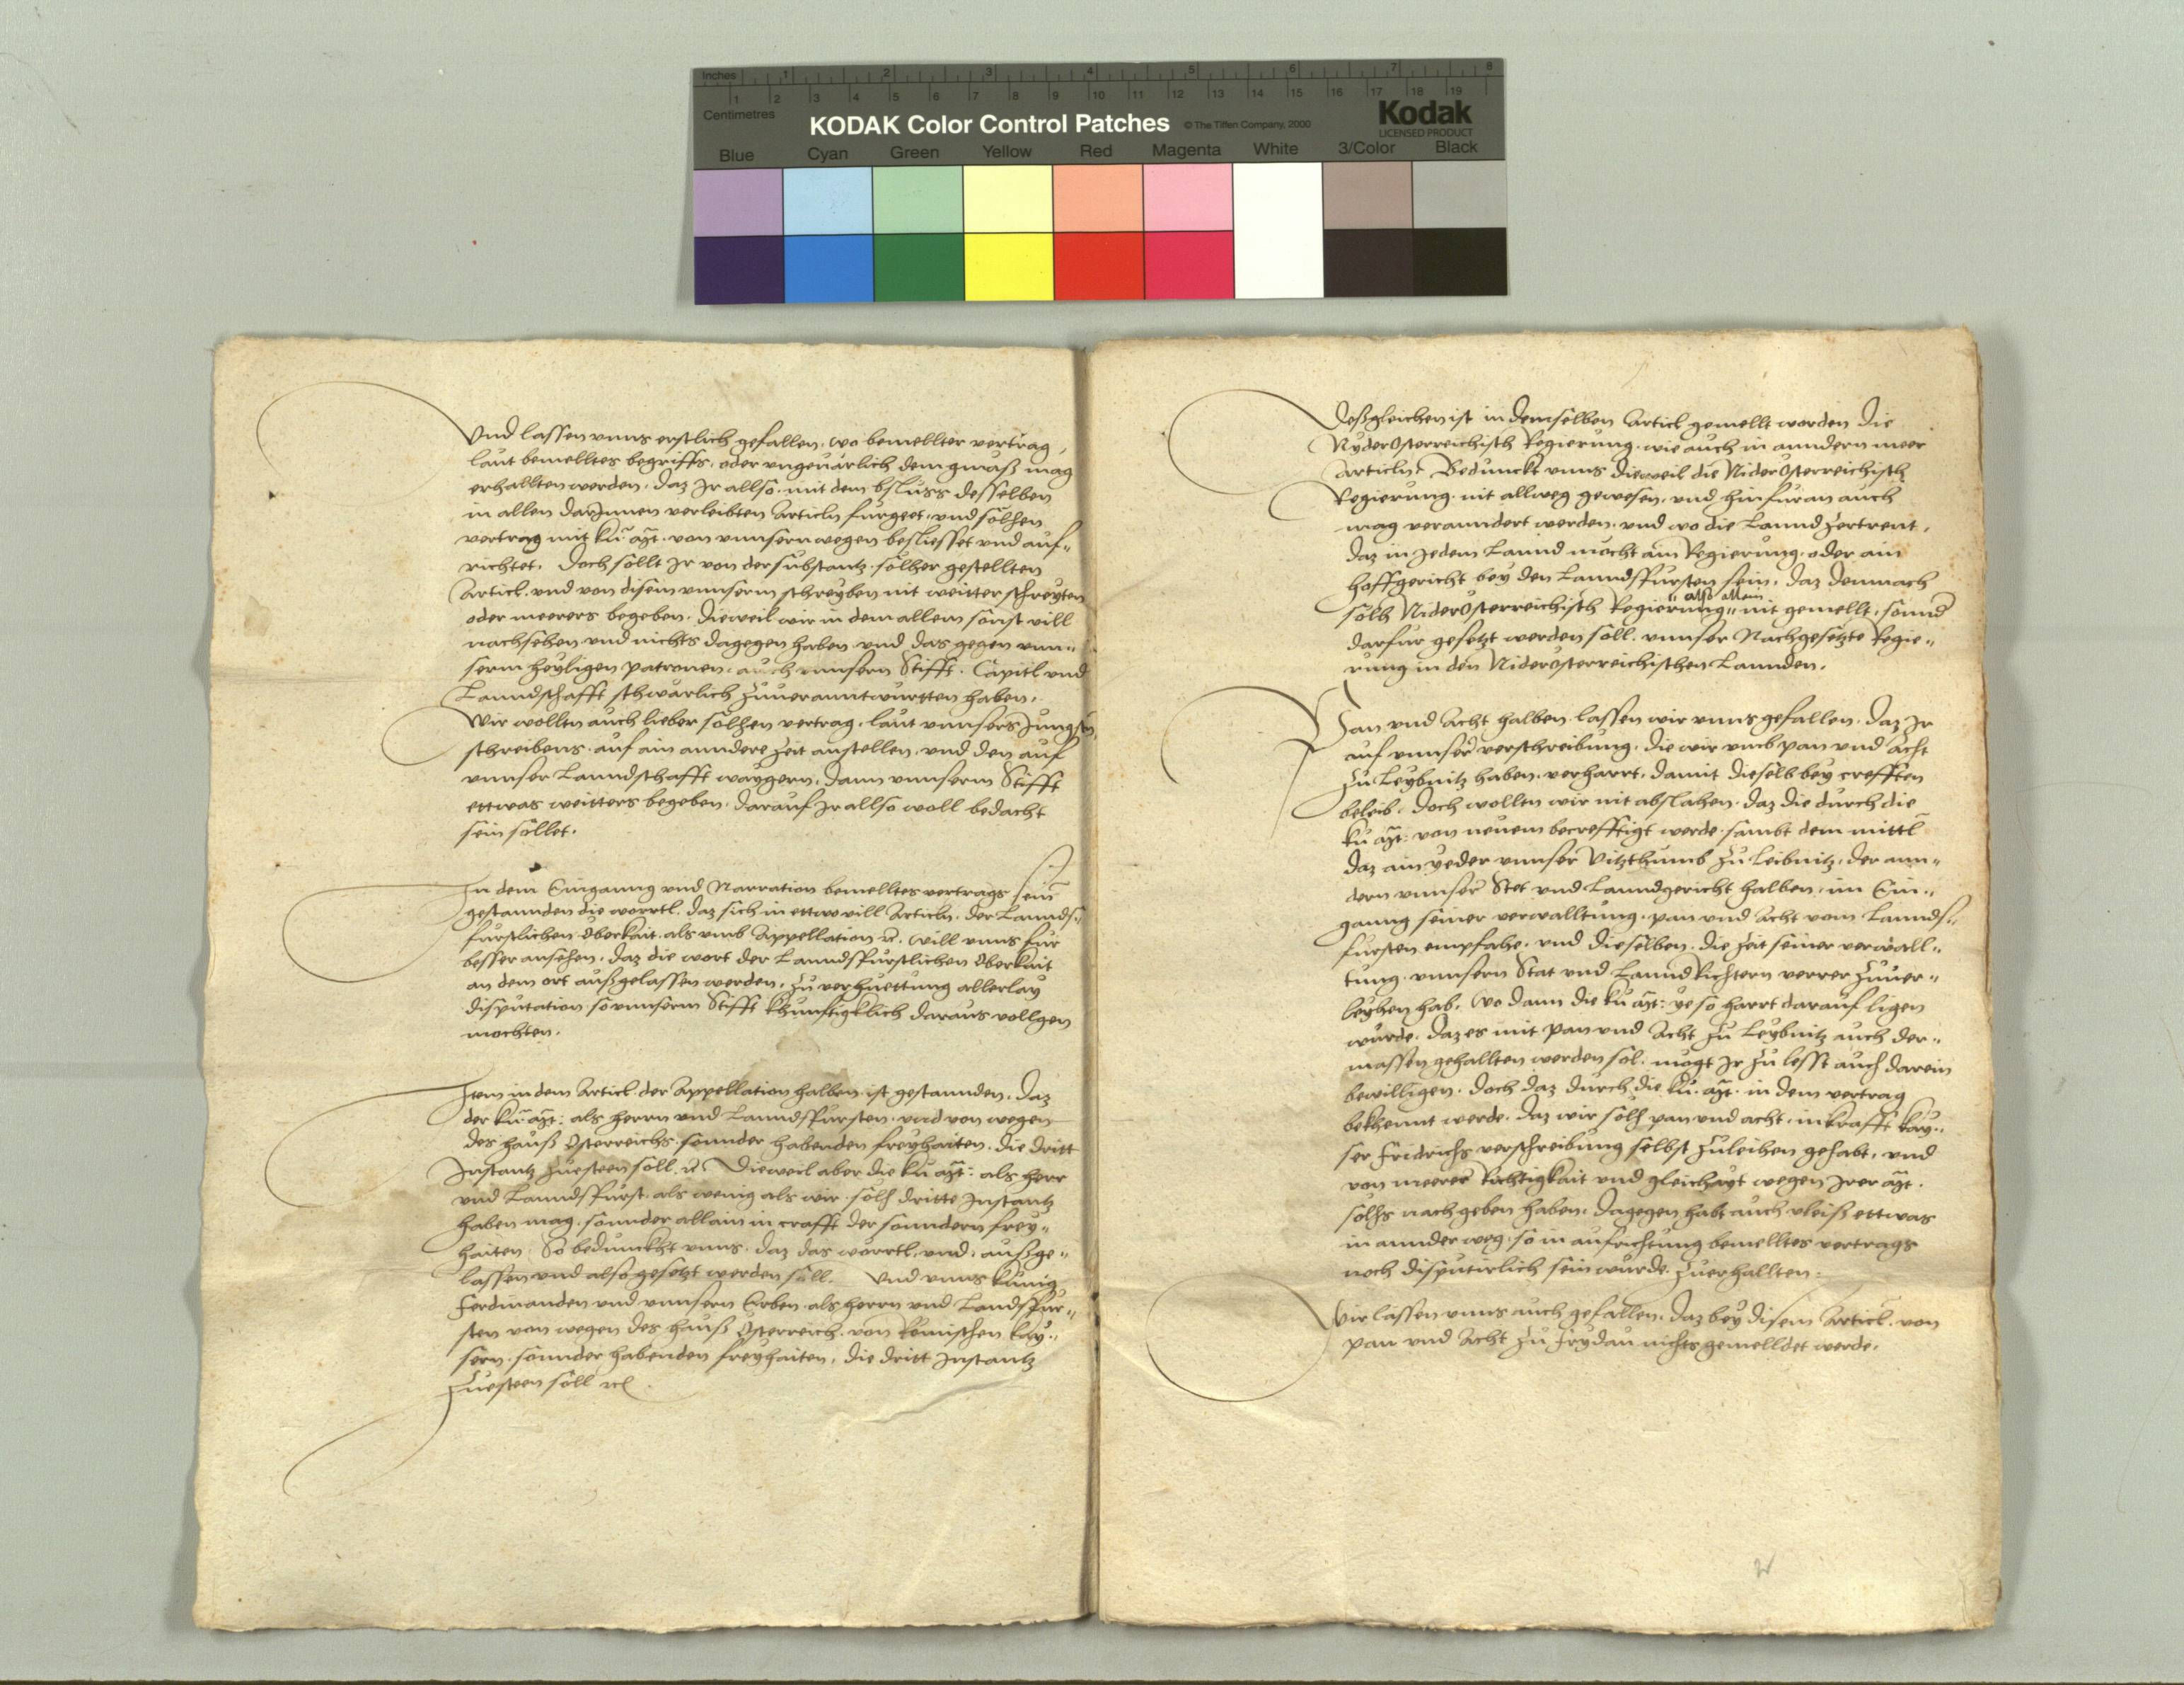 Inches 1 2 3 4 5 6 7 8
1 2 3 4 5 6 7 8 9 10 11 12 13 14 15 16 17 18 19
Centimetres
KODAK Color Control Patches © The Tiffen Company, 2000 Kodak
LICENSED PRODUCT
Blue Cyan Green Yellow Red Magenta White 3/Color Black
Vnd lassen vnns erstlich gefallen, wo bemellter vertrag,
laut bemelltes begriffs, oder vngeuärlich dem gmäß mag
erhallten werden, daz Ir allso mit dem bsluss desselben
in allen darJnnen verleibten Articln fürgeet, vnd sölhen
vertrag mit kü. Mt. von vnnsern wegen besliesset vnd auf„
richtet. Doch söllt Ir von der substantz sölher gestellten
Articl, vnd von disem vnnserm schreyben nit weitter schreyten
oder meerers begeben. Dieweil wir in dem allem sonst vill
nachsehen vnd nichts dagegen haben vnd das gegen vnn„
serm heyligen patronen, auch vnnserm Stifft, Capitl vnd
Lanndschafft schwärlich zuuerantwurtten haben.
Wir wollten auch lieber sölhen vertrag, laut vnnsers Jungsten
schreibens auf ain anndere zeit anstellen, vnd den auf
vnnser Lanndschafft waygern, dann vnnserm Stifft
ettwas weitters begeben, darauf Ir allso woll bedacht
sein söllet.
In dem Einganng vnd Narration bemelltes vertrags sein
gestannden die wörrtl, daz sich in ettwo vill Articln, der Lannds„
fürstlichen Oberkait, als vmb Appellation rc. Will vnns für
besser ansehen, daz die wort der Lanndsfürstlichen Oberkait
an dem ort außgelassen werden, zu verhuettung allerlay
disputation so vnnserm Stifft khunfftigklich daraus vollgen
mochten.
Item in dem Articl der Appellation halben ist gestannden, Daz
der kü. Mt: als herrn vnd Lanndsfürsten, vnd von wegen
des hauß Osterreichs, sonnder habenden freyhaiten, die dritt
Instantz zuesteen soll, rc. Dieweil aber die kü. Mt: als herr
vnd Lanndsfürst, als wenig als wir, sölh dritte Instantz
haben mag, sonnder allain in crafft der sonndern frey„
haiten, So bedunckht vnns, daz das wörrtl, vnd, außge„
lassen vnd also gesetzt werden söll. Vnd vnns künig
Ferdinanden vnd vnnsern Erben als herrn vnd Landsfür„
sten von wegen des hauß Osterreich, von Römischen kay„
sern sonnder habenden freyhaiten, die dritt Instantz
zuesteen söll rc
Deßgleichen ist in demselben Articl gemellt worden die
NyderOsterreichisch Regierung, wie auch in anndern meer
Articln, Bedunckt vnns dieweil die NiderOsterreichisch
Regierung nit allweg gewesen, vnd hinfüran auch
mag veranndert werden, vnd wo die Lannd zertrent,
daz in Jedem Lannd möcht ain Regierung, oder ain
hoffgericht bey den Lanndsfürsten sein, daz demnach
also allain
sölh NiderOsterreichisch Regierung„ nit gemellt, sonnd
darfür gesetzt werden söll, vnnser Nachgesetzte Regie„
rung in den NiderOsterreichischen Lannden.
Pan vnd Acht halben, lassen wir vnns gefallen, daz Ir
auf vnnser verschreibung, die wir vmb pan vnd Acht
zu Leybnitz haben, verharrt, damit dieselb bey crefften
beleib. Doch wollten wir nit abslahen, daz die durch die
kü Mt: von neuem becrefftigt werde, sambt dem mittl
daz ain yeder vnnser Vitzthumb zu Leibnitz, der ann„
dern vnnser Stet vnd Lanndgericht halben, im Ein„
ganng seiner verwalltung, pan vnd Acht vom Lannds„
fürsten empfahe, vnd dieselben die zeit seiner verwall„
tung vnnsern Stat vnd Lannd Richtern verrer zuuer„
leyhen hab, Wo dann die kü Mt: ye so harrt darauf ligen
wurde, daz es mit pan vnd Acht zu Leybnitz auch der„
massen gehallten werden sol, mögt Ir zu lesst auch darein
bewilligen. Doch daz durch die kü. Mt. in dem vertrag
bekhennt werde, daz wir sölh pan vnd acht, in krafft kay„
ser Fridrichs verschreibung selbst zuleihen gehabt, vnd
von meerer Richtigkait vnd gleichayt wegen Irer Mt.
sölhs nach geben haben, dagegen habt auch vleiß ettwas
in annder weg, so in aufrichtung bemelltes vertrags
noch disputirlich sein wurde, zuerhallten.
Wir lassen vnns auch gefallen, daz bey disem Articl von
pan vnd Acht zu Frydau nichts gemelldet werde.